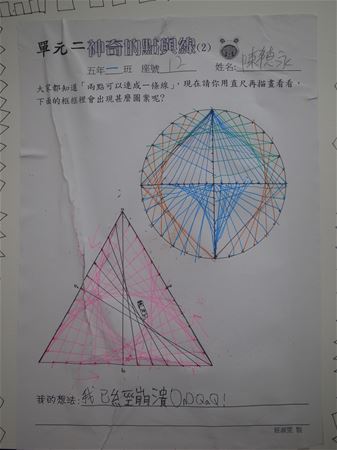 單元二神奇的點與線(2)
五年一班 座號12 姓名:陳穎永
大家都知道「兩點可以連成一條線」,現在請你用直尺再描畫看看,
下面的框框裡會出現甚麼圖案呢?
我的想法:我已經崩潰